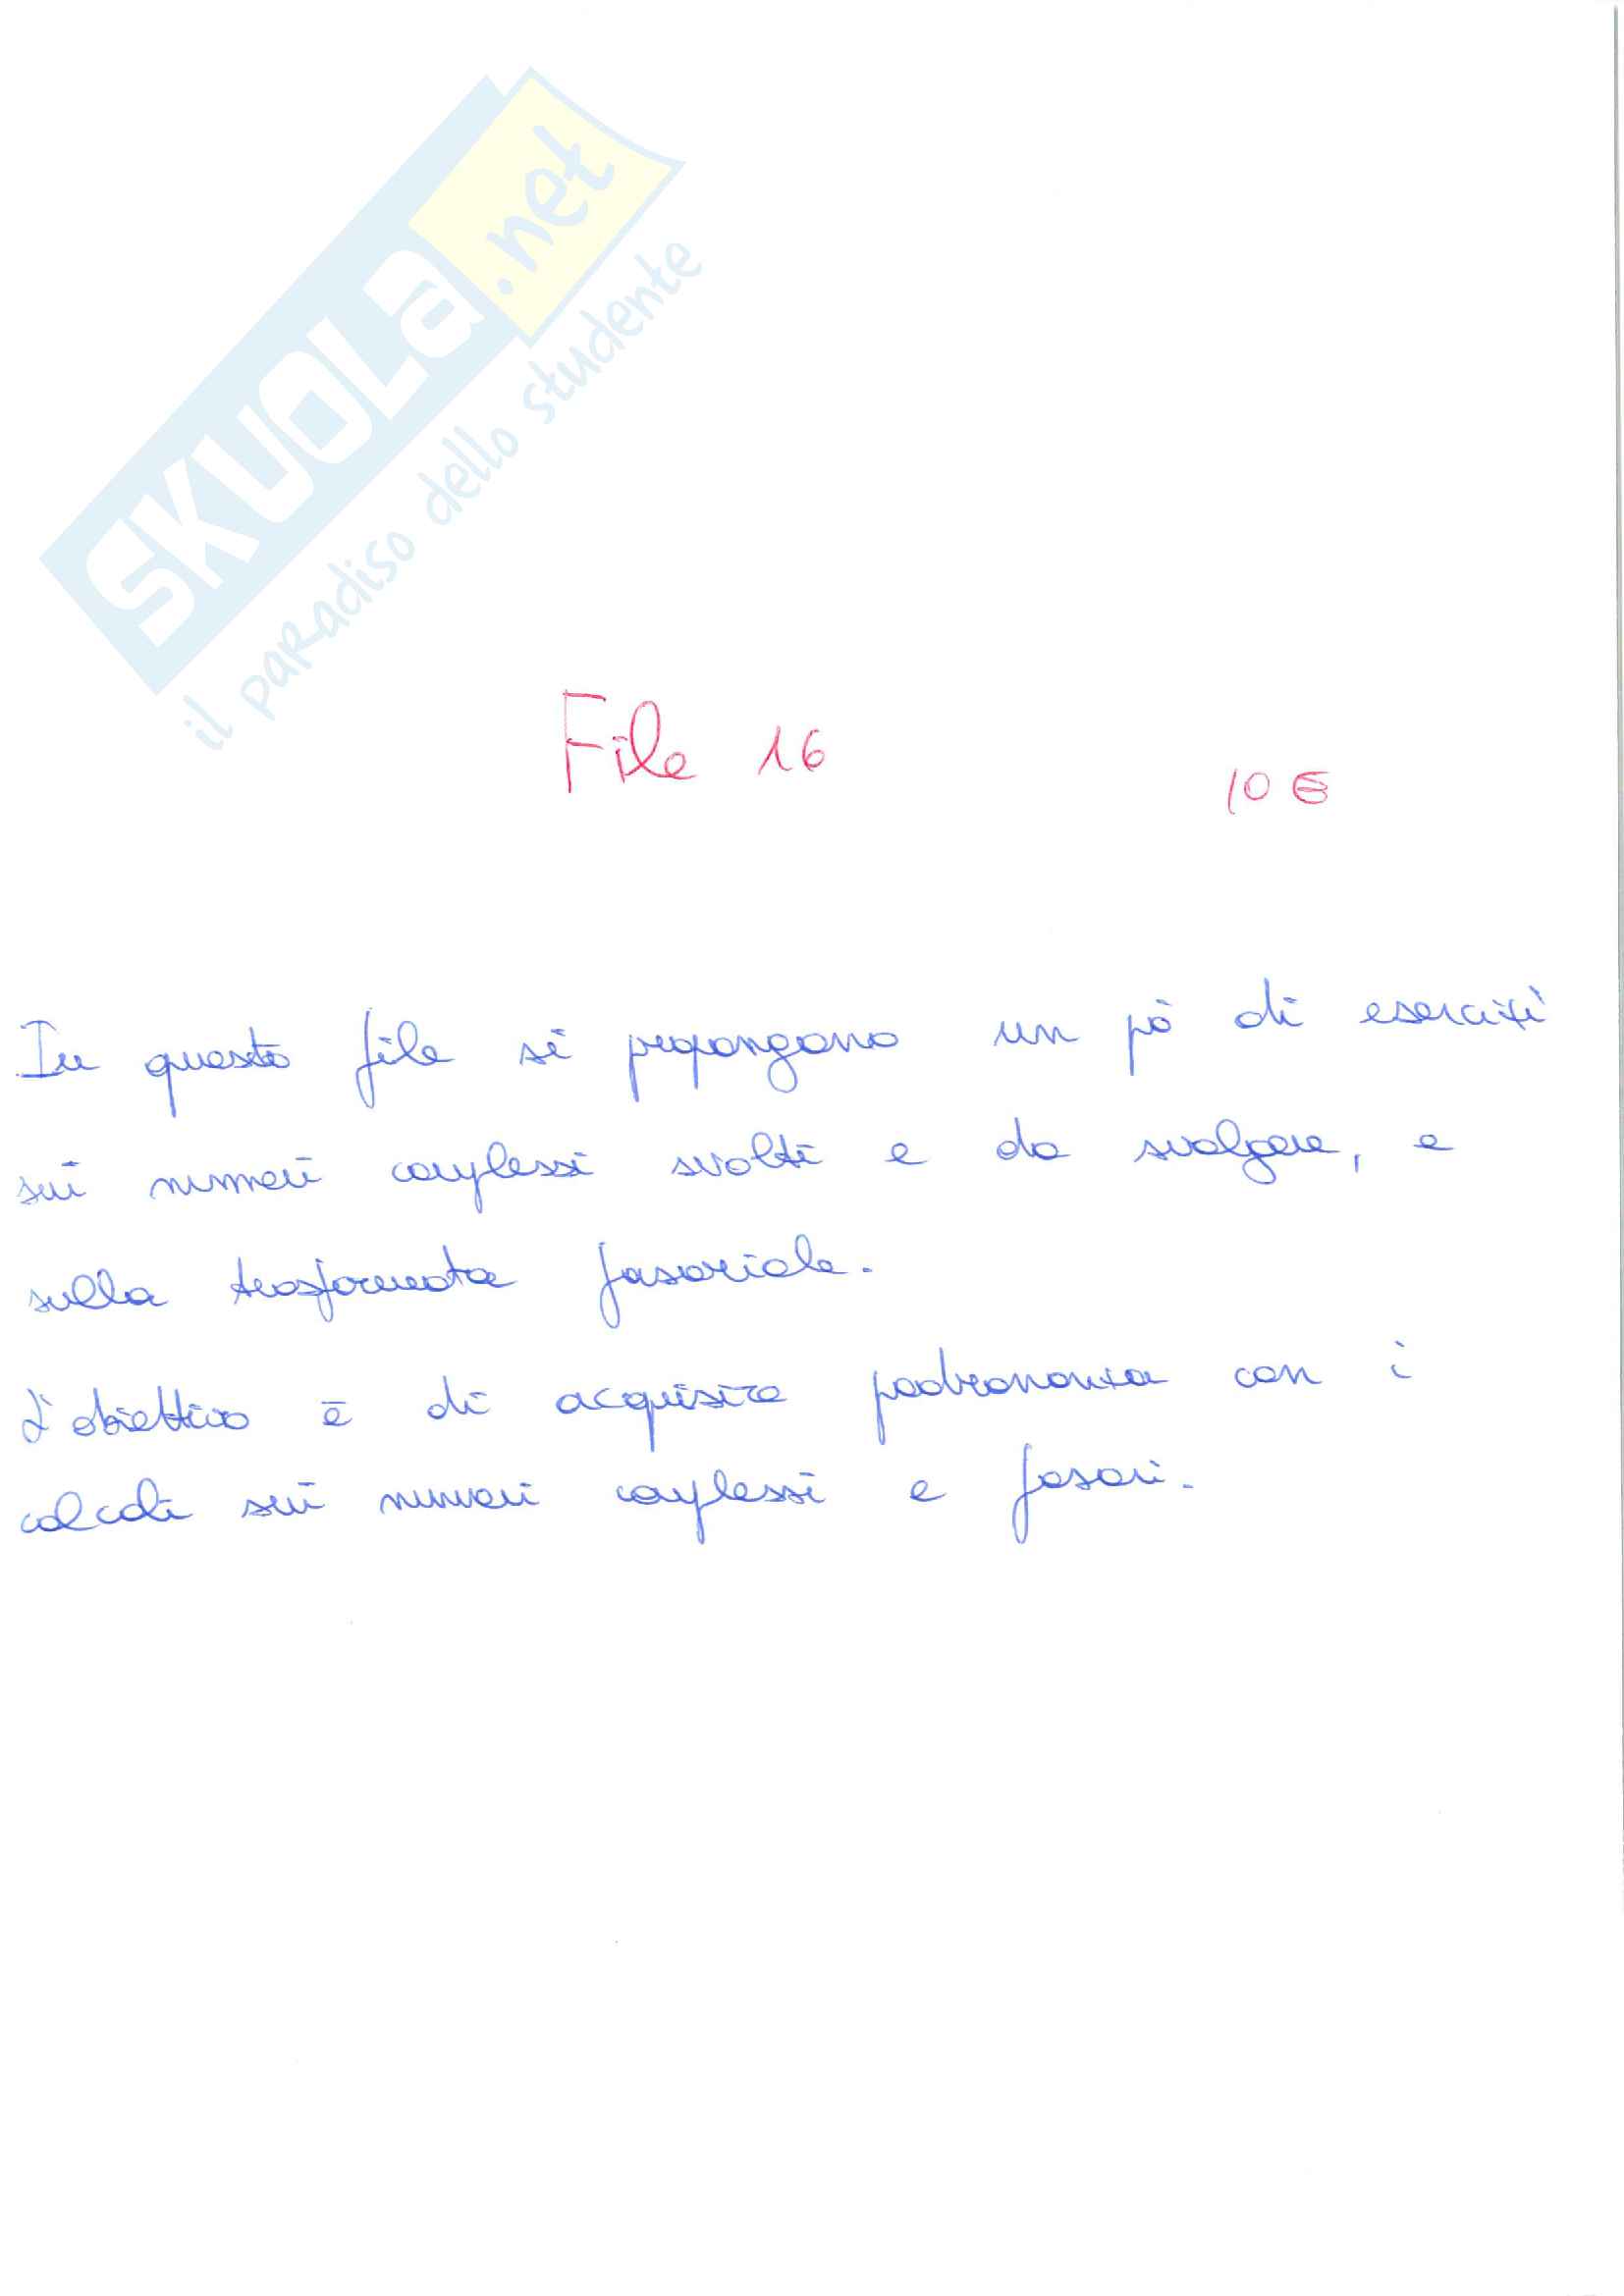 SKUOLA.net
il paradiso dello studente
File 16
10 €
In questo file si propongono un pò di esercizi
sui numeri complessi svolti e da svolgere, e
sulla trasformata fasoriale.
L'obiettivo è di acquisire padronanza con i
calcoli sui numeri complessi e fasori.